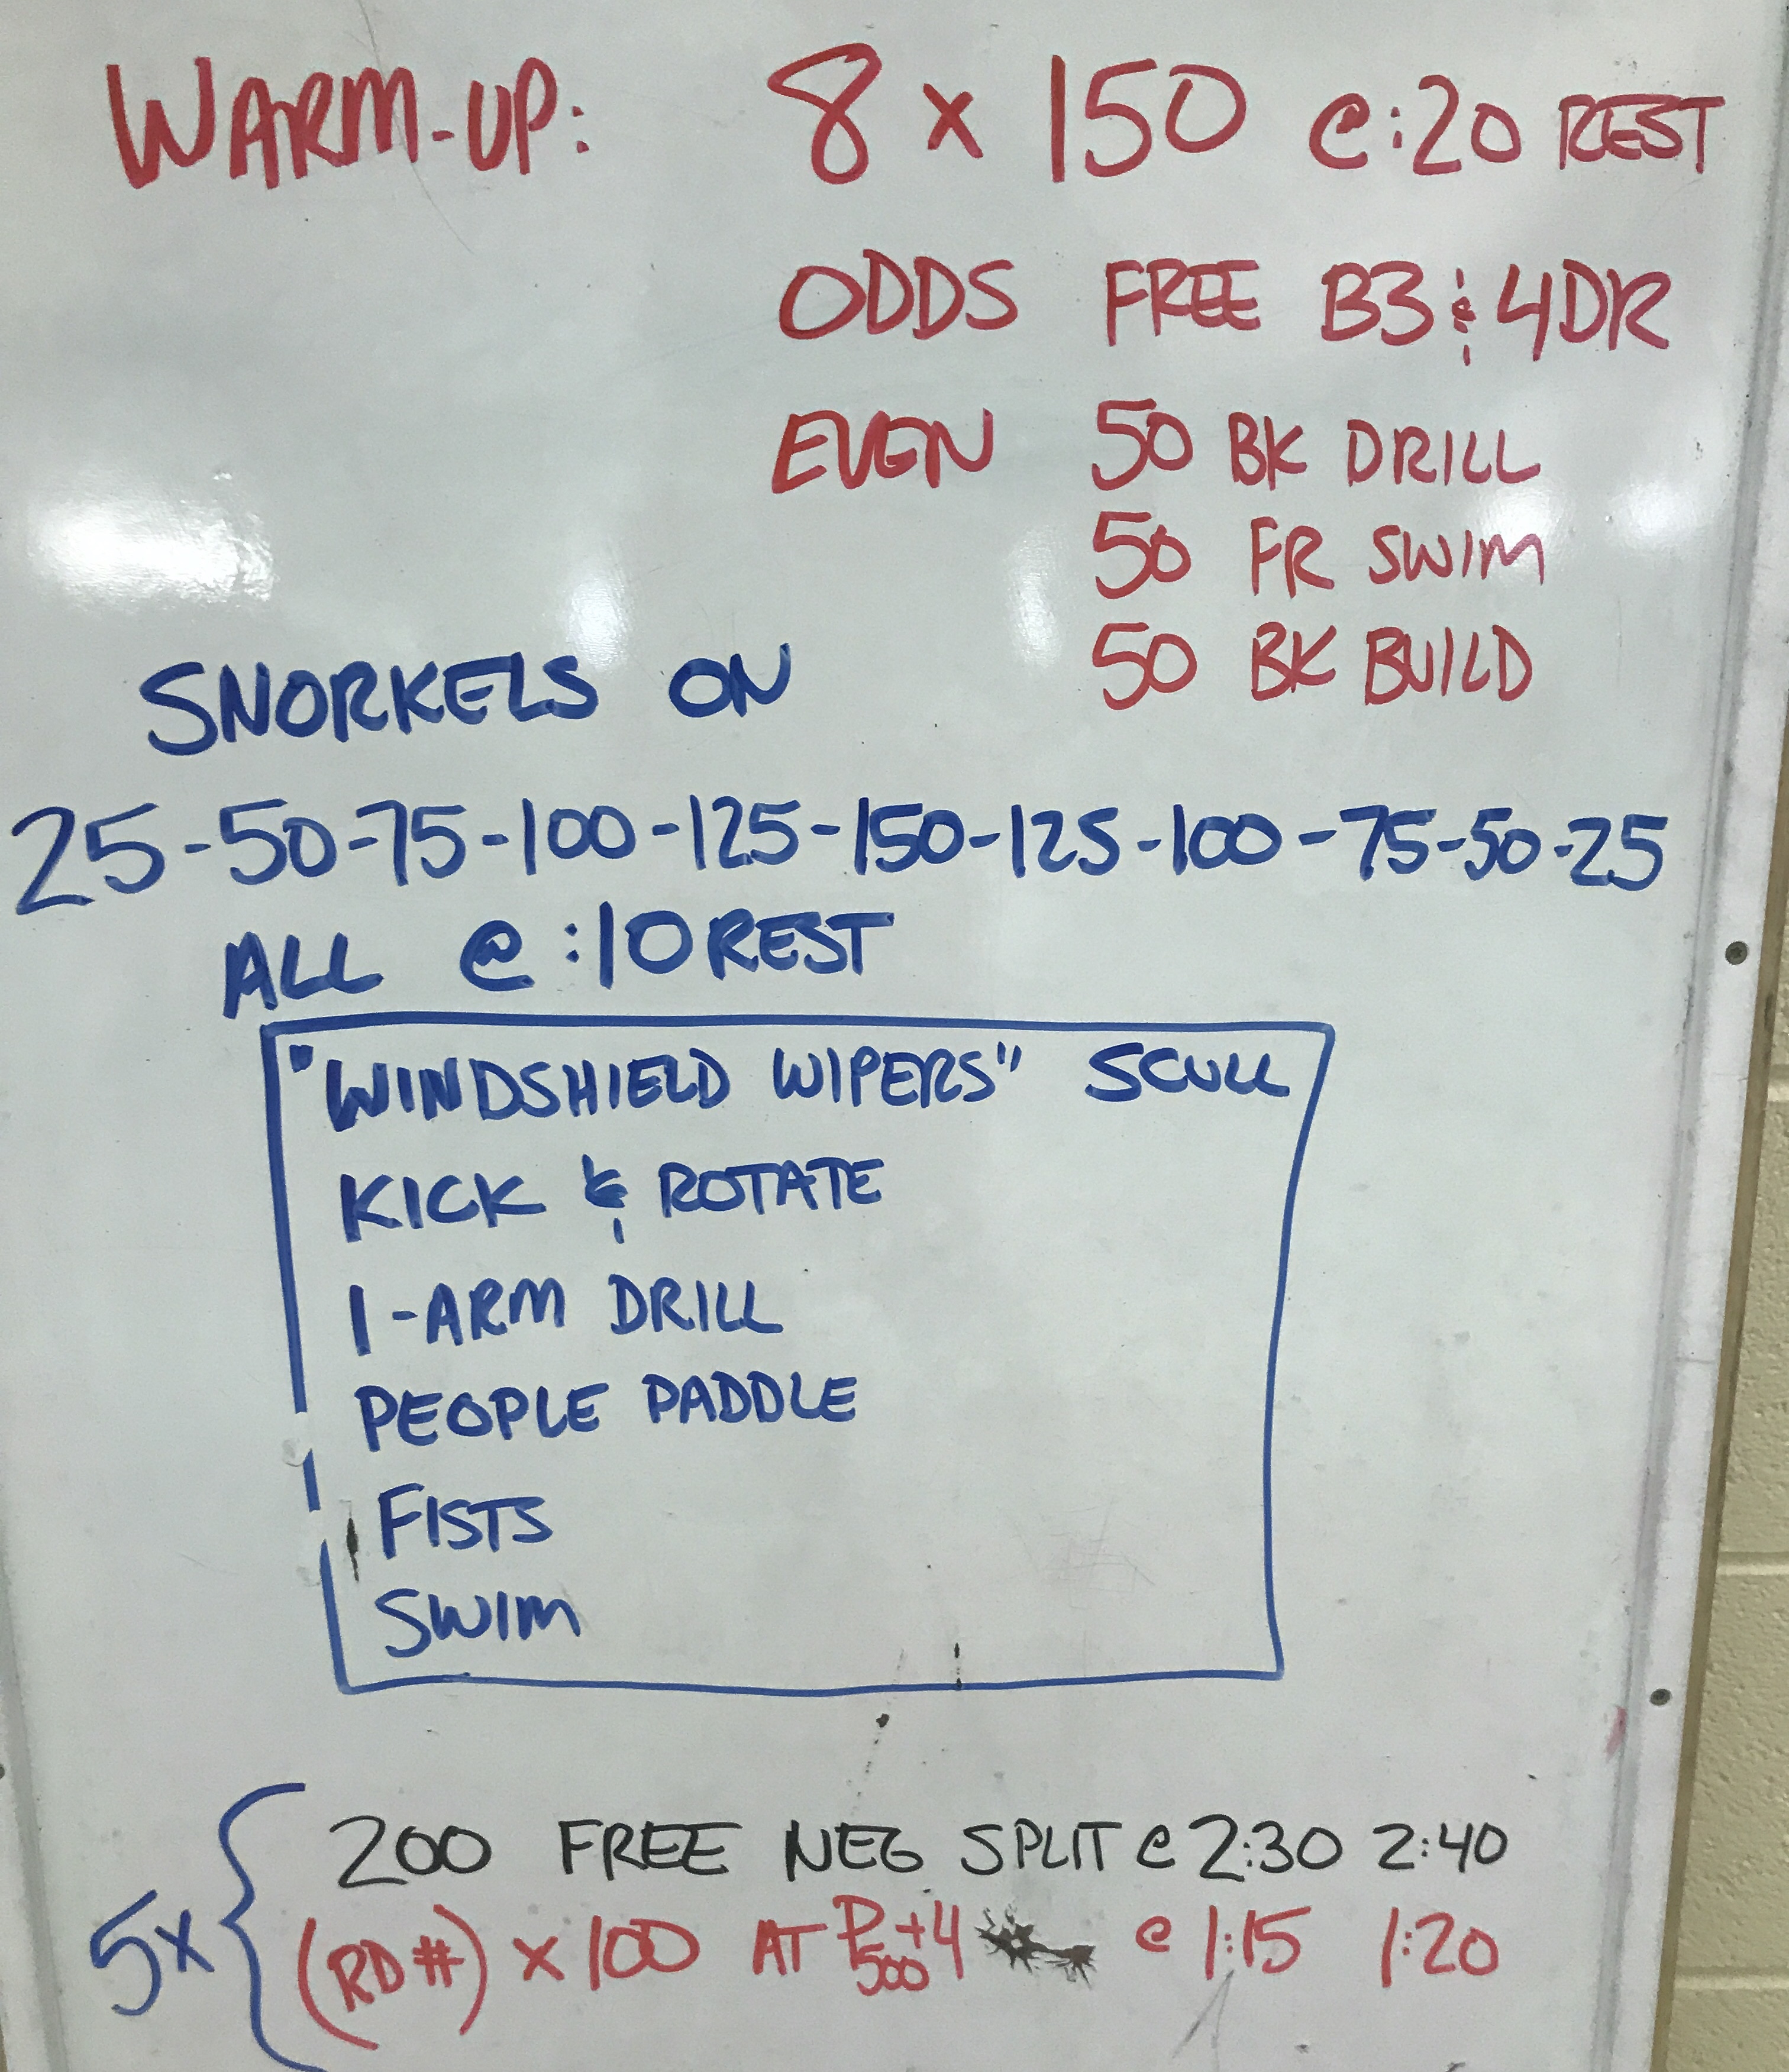 WARM-UP: 8 x 150 @ :20 REST
ODDS FREE B3 & 4DR
EVEN 50 BK DRILL
50 FR SWIM
50 BK BUILD
SNORKELS ON
25-50-75-100-125-150-125-100-75-50-25
ALL @ :10 REST
"WINDSHIELD WIPERS" SCULL
KICK & ROTATE
1-ARM DRILL
PEOPLE PADDLE
FISTS
SWIM
5x
200 FREE NEG SPLIT @ 2:30 2:40
(RD#) x 100 AT P500+4 @ 1:15 1:20